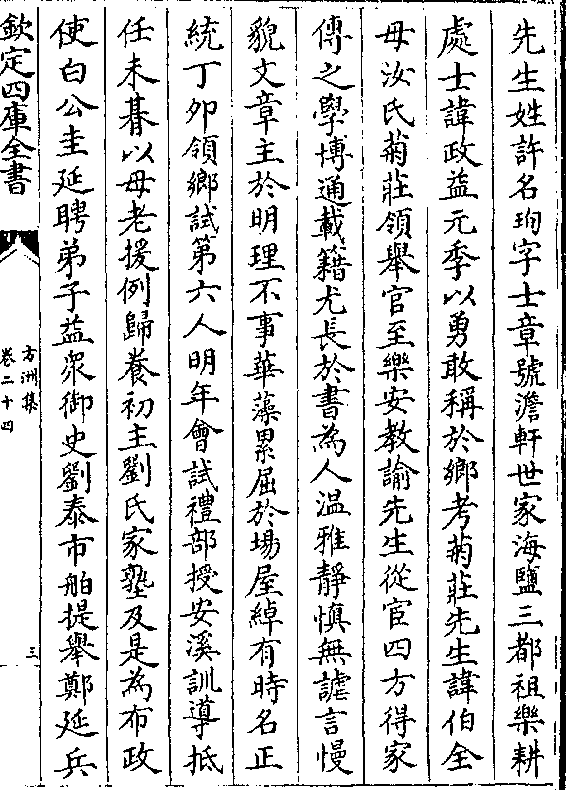 先生姓許名珣字士章號澹軒世家海鹽三都祖樂耕
處士諱政益元季以勇敢稱於鄉考菊莊先生諱伯全
母汝氏菊莊領舉官至樂安教諭先生從宦四方得家
傳之學博通載籍尤長於書為人温雅靜慎無謔言慢
貌文章主於明理不事華藻累屈於場屋綽有時名正
統丁卯領鄉試第六人明年會試禮部授安溪訓導抵
任未朞以母老援例歸養初主劉氏家塾及是為布政
使白公圭延聘弟子益衆御史劉泰市舶提舉鄭延兵
欽定四庫全書
方洲集
卷二十四
三